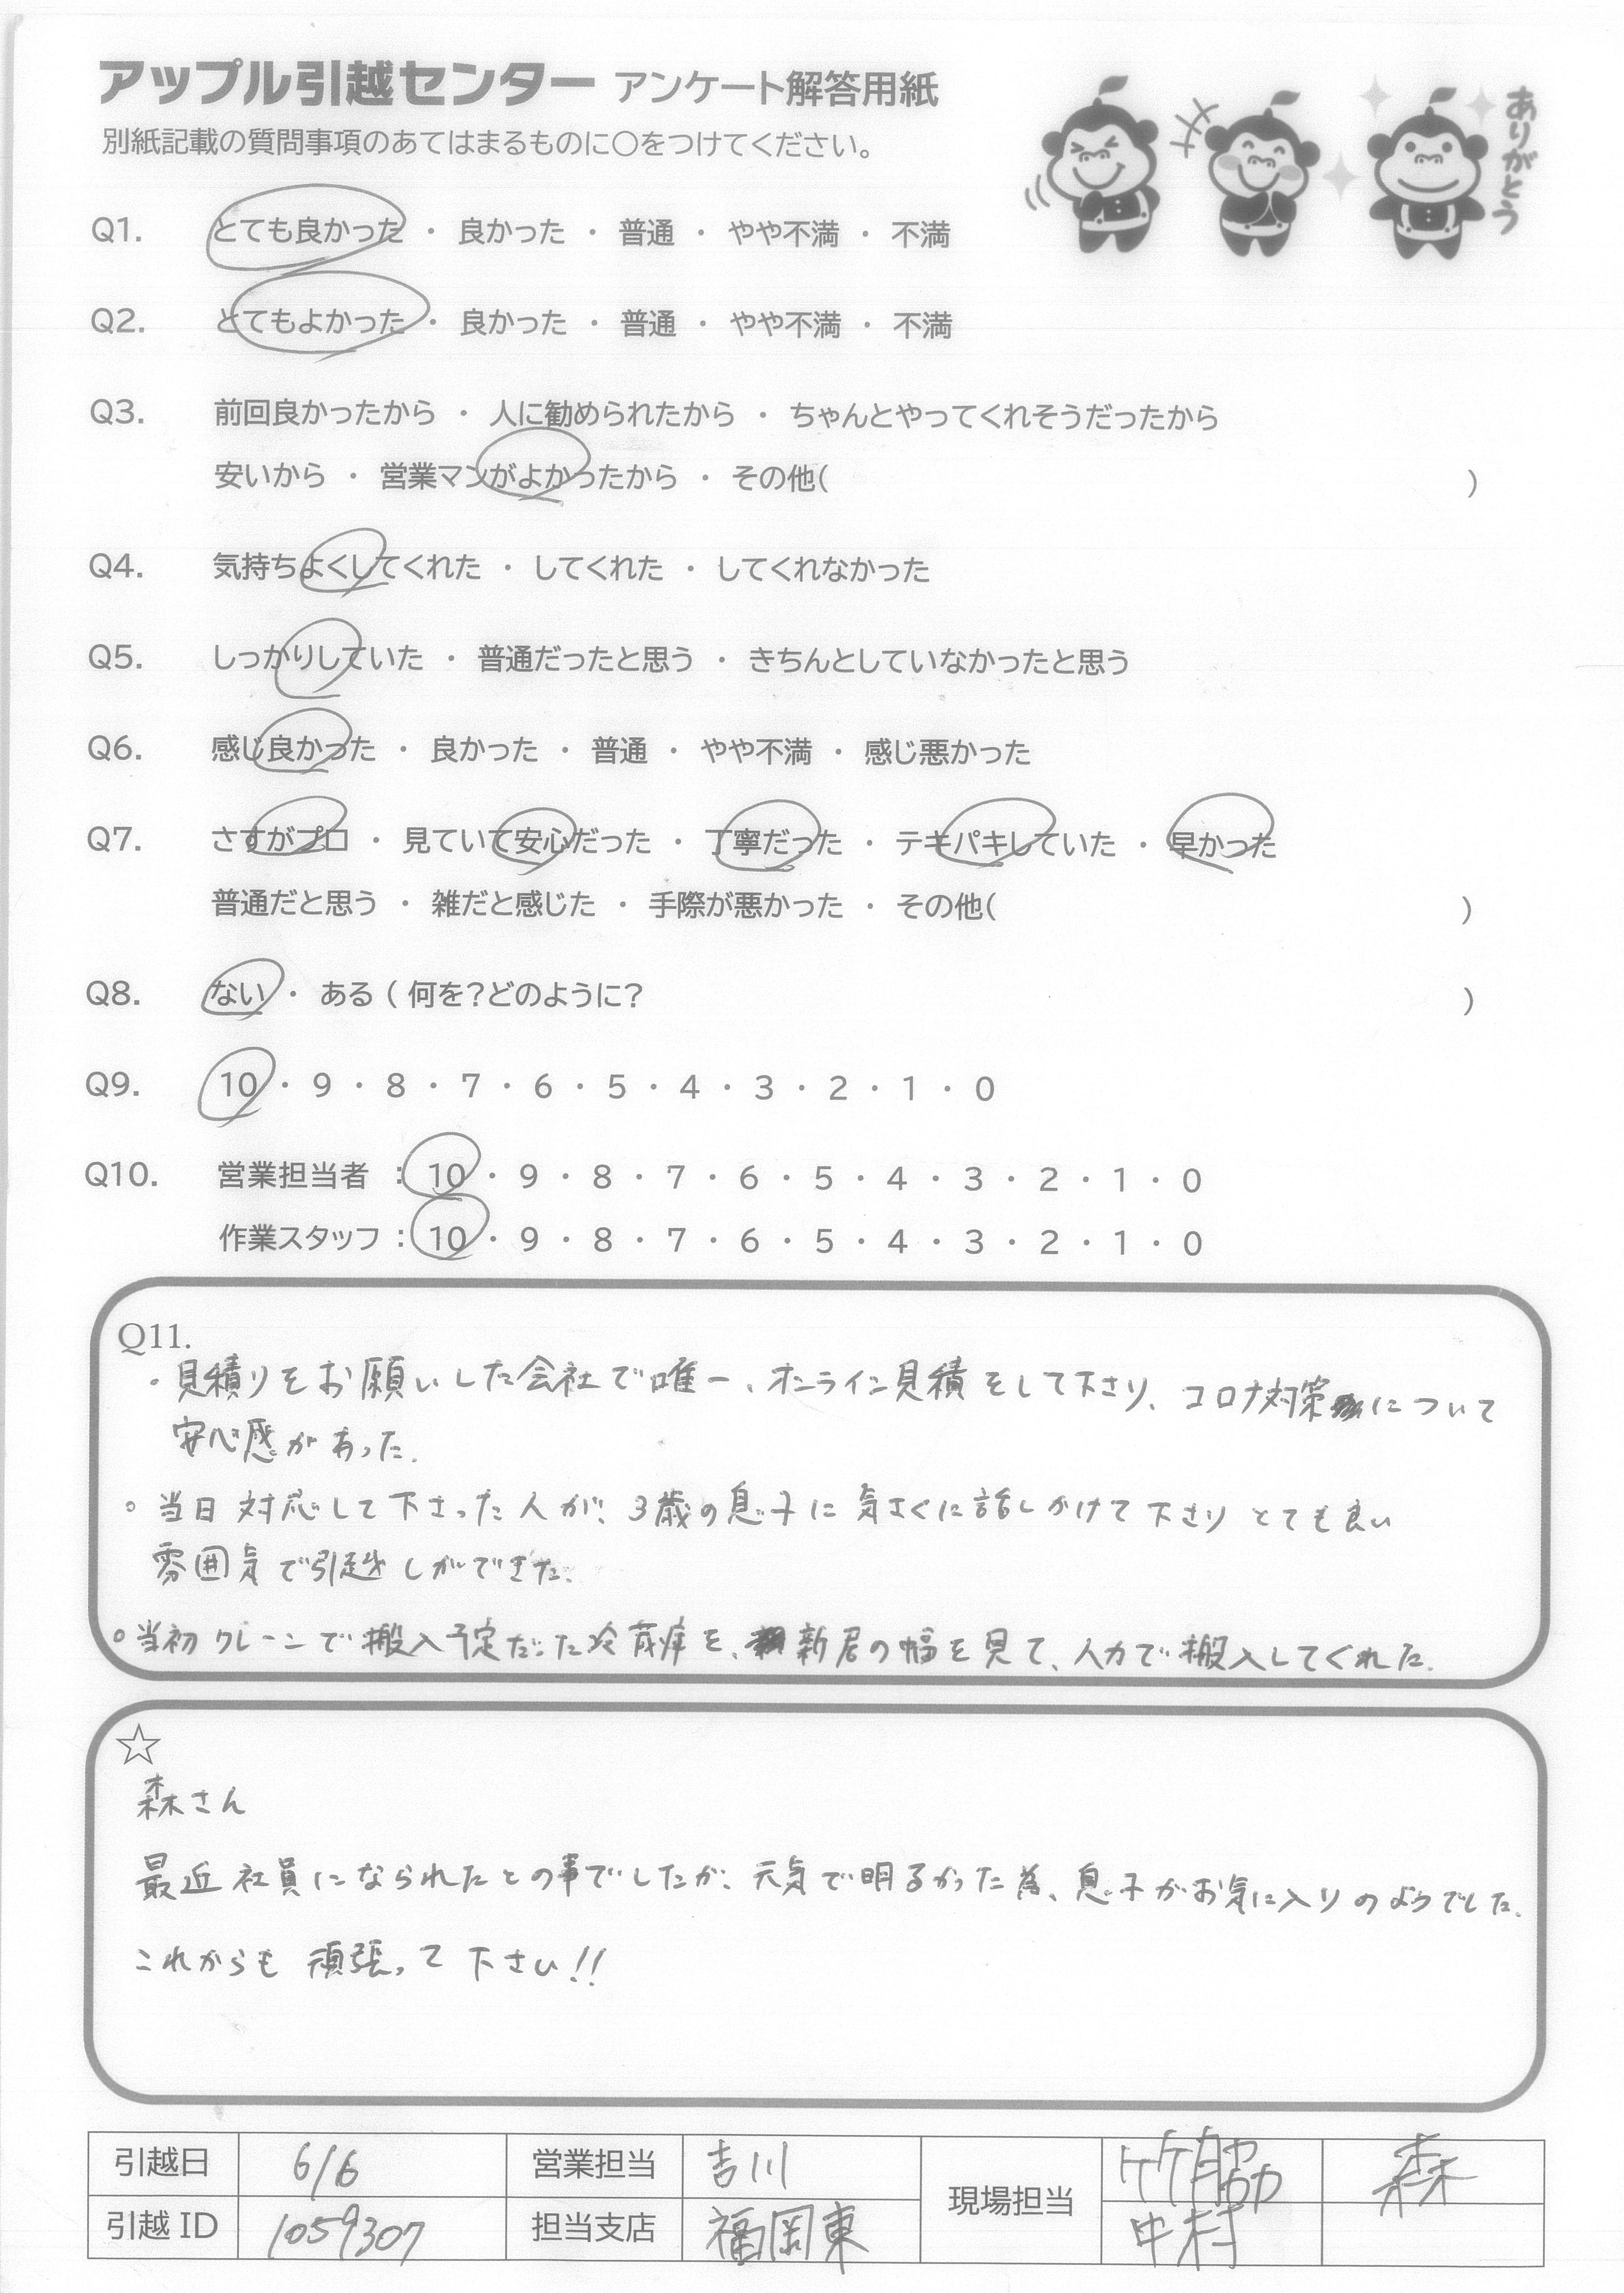 アップル引越センター アンケート解答用紙
ありがとう
別紙記載の質問事項のあてはまるものに〇をつけてください。
Q1. とても良かった ・ 良かった ・ 普通 ・ やや不満 ・ 不満
Q2. とてもよかった ・ 良かった ・ 普通 ・ やや不満 ・ 不満
Q3. 前回良かったから ・ 人に勧められたから ・ ちゃんとやってくれそうだったから
安いから ・ 営業マンがよかったから ・ その他( )
Q4. 気持ちよくしてくれた ・ してくれた ・ してくれなかった
Q5. しっかりしていた ・ 普通だったと思う ・ きちんとしていなかったと思う
Q6. 感じ良かった ・ 良かった ・ 普通 ・ やや不満 ・ 感じ悪かった
Q7. さすがプロ ・ 見ていて安心だった ・ 丁寧だった ・ テキパキしていた ・ 早かった
普通だと思う ・ 雑だと感じた ・ 手際が悪かった ・ その他( )
Q8. ない ・ ある ( 何を?どのように? )
Q9. 10 ・ 9 ・ 8 ・ 7 ・ 6 ・ 5 ・ 4 ・ 3 ・ 2 ・ 1 ・ 0
Q10. 営業担当者 : 10 ・ 9 ・ 8 ・ 7 ・ 6 ・ 5 ・ 4 ・ 3 ・ 2 ・ 1 ・ 0
作業スタッフ : 10 ・ 9 ・ 8 ・ 7 ・ 6 ・ 5 ・ 4 ・ 3 ・ 2 ・ 1 ・ 0
Q11.
・見積りをお願いした会社で唯一、オンライン見積をして下さり、コロナ対策について
安心感があった。
○ 当日対応して下さった人が、3歳の息子に気さくに話しかけて下さりとても良い
雰囲気で引越しができた。
○当初クレーンで搬入予定だった冷蔵庫を、新居の幅を見て、人力で搬入してくれた。
☆
森さん
最近社員になられたとの事でしたが、元気で明るかった為、息子がお気に入りのようでした。
これからも頑張って下さい!!
引越日 6/6 営業担当 吉川 現場担当 竹脇 森
引越 ID 1059307 担当支店 福岡東 中村